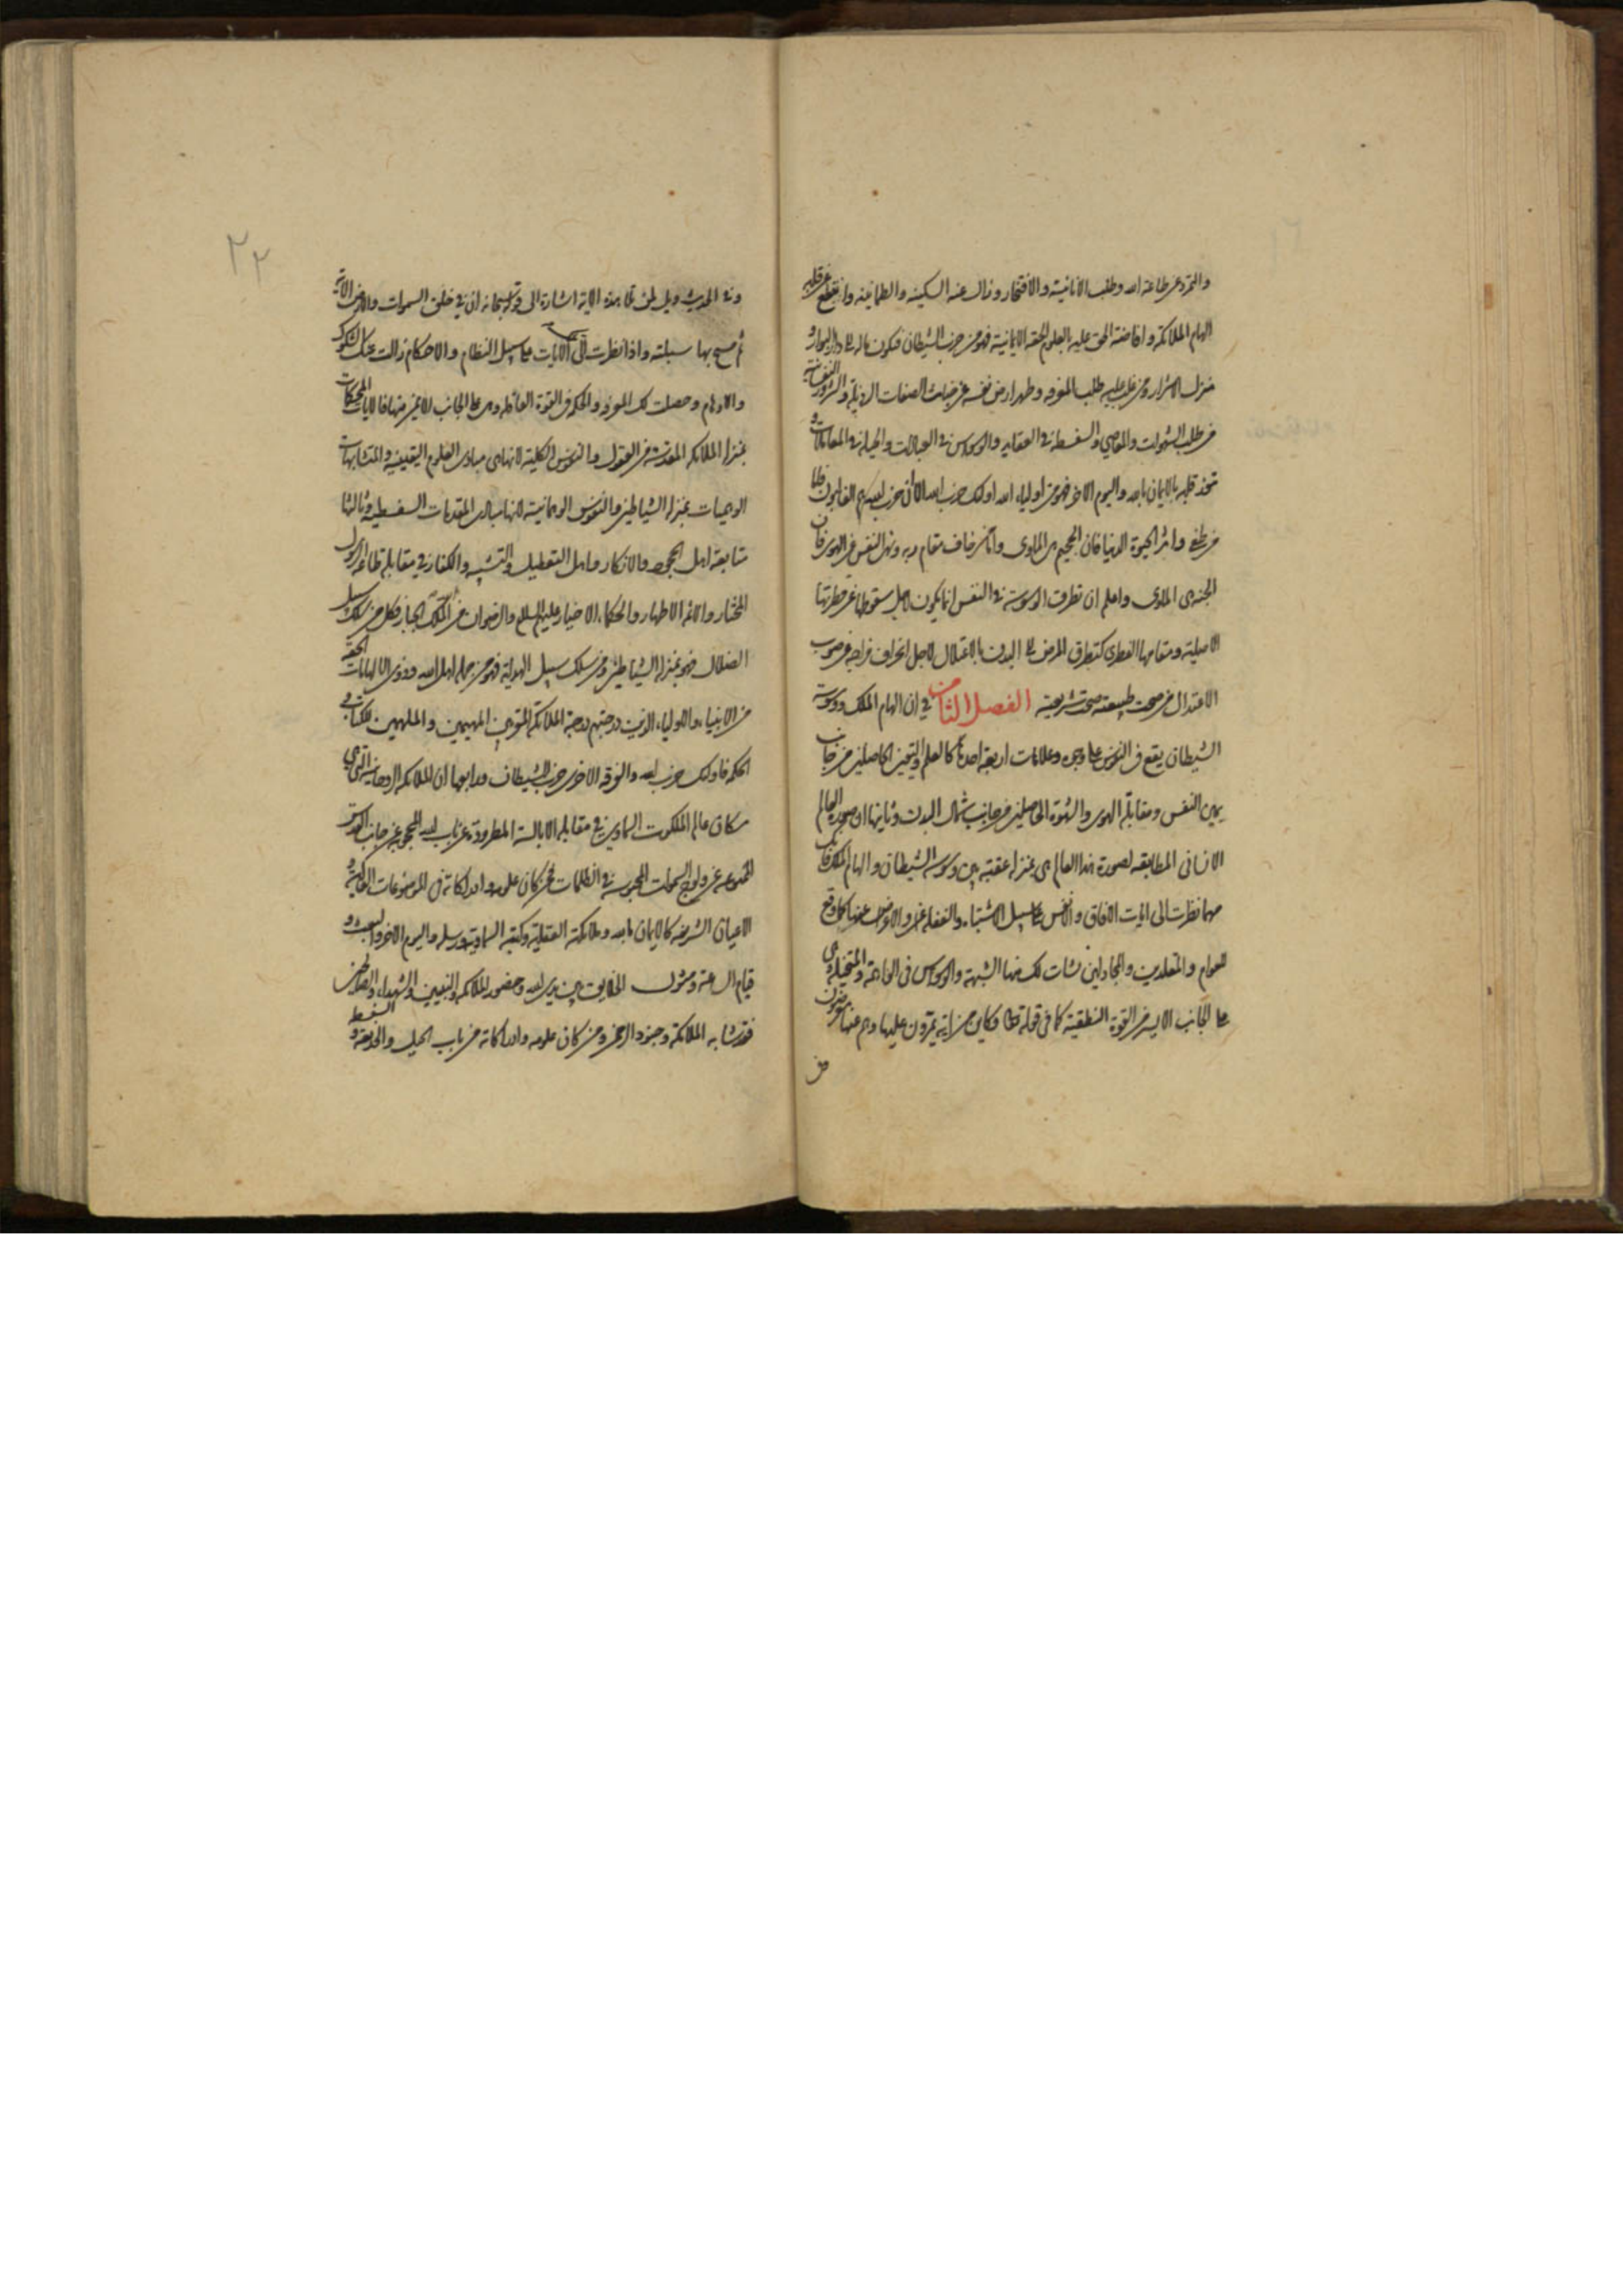 والتمرد عن طاعة الله وطلب الانانية والافتخار وزال عنه السكينة والطمانينة وانقطع عن قلبه
الهام الملائكة وافاضة الحق عليه بالعلوم الحقة الايمانية فهو من حزب الشيطان فيكون ماله الى دار البوار و
منزل الاشرار ومن غلب عليه طلب المعرفة وطهر ارض نفسه عن خبائث الصفات الرذيلة والشرور النفسانية
من طلب الشهوات والمعاصي والسفسطة في العقايد والوسواس في العبادات والحيلة في المعاملات و
تنور قلبه بالايمان بالله واليوم الاخر فهو من اولياء الله اولئك حزب الله الا ان حزب الله هم الغالبون فاما
من طغى واثر الحيوة الدنيا فان الجحيم هي الماوى واما من خاف مقام ربه ونهى النفس عن الهوى فان
الجنة هي الماوى واعلم ان تطرق الوسوسة في النفس انما يكون لاجل سقوطها عن فطرتها
الاصلية ومقامها الفطرى كتطرق المرض الى البدن بالاعتلال لاجل انحراف مزاجه عن صوب
الاعتدال من صحت طبيعته صحت شريعته الفصل الثامن في ان الهام الملك ووسوسة
الشيطان يقع في النفوس على وجوه وعلامات اربعة احدها كالعلم واليقين الحاصلين من جانب
يمين النفس ومقابلة الهوى والشهوة الحاصلين من جانب شمال البدن وثانيها ان صورة العالم
الانسانى المطابقة لصورة هذا العالم هي بمنزلة عقبة بين وسوسة الشيطان والهام الملك فانك
مهما نظرت الى ايات الافاق والانفس على سبيل الاشتباه والغفلة عنها والاعراض عنها كما وقع
للعوام والمقلدين والمجادلين نشات لك منها الشبهة والوسواس في الواهمة والمتخيلة وهي
على الجانب الايسر من القوة النطقية كما في قوله تعالى وكاين من اية يمرون عليها وهم عنها معرضون
من
وفي الحديث ويل لمن تلا هذه الاية اشارة الى قوله سبحانه ان في خلق السموات والارض الاية
ثم مسح بها سبلته واذا نظرت الى الايات على سبيل النظام والاحكام زالت عنك الشكوك
والاوهام وحصلت لك المعرفة والحكمة في القوة العاقلة وهي على الجانب الايمن منها فالايات المحكمات
بمنزلة الملائكة المقدسة من العقول والنفوس الكلية لانها هي مبادى العلوم اليقينية والمتشابهات
الوهميات بمنزلة الشياطين والنفوس الوهمانية لانها مبادى المقدمات السفسطية وثالثها
متابعة اهل الجحود والانكار واهل التعطيل والتشبيه والكفار في مقابلة طاعة الرسول
المختار والائمة الاطهار والحكماء الاخيار عليهم السلام والرضوان من الملك الجبار فكل من سلك سبيل
الضلال فهو بمنزلة الشياطين ومن سلك سبيل الهداية فهو من جملة اهل الله وذوى الالهامات الحقة
من الانبياء والاولياء الذين درجتهم درجة الملائكة المقربين المهيمين والملهمين للكتاب و
الحكمة فاولئك حزب الله والفرقة الاخرى حزب الشيطان ورابعها ان الملائكة الروحانية التي هي
سكان عالم الملكوت السماوي في مقابلة الابالسة المطرودة عن باب الله المحجوبة عن جانب القدس
الممنوعة عن ولوج السموات المحبوسة في الظلمات فمن كان علومه وادراكاته في الموضوعات العالية و
الاعيان الشريفة كالايمان بالله وملائكته العقلية وكتبه السماوية ورسله واليوم الاخر والبعث و
قيام الساعة ومثول الخلايق بين يدى الله وحضور الملائكة والنبيين والشهداء والصالحين
فقد شابه الملائكة وجنود الرحمن ومن كان علومه وادراكاته من باب الحيل والخديعة والسفسطة و
٢٢